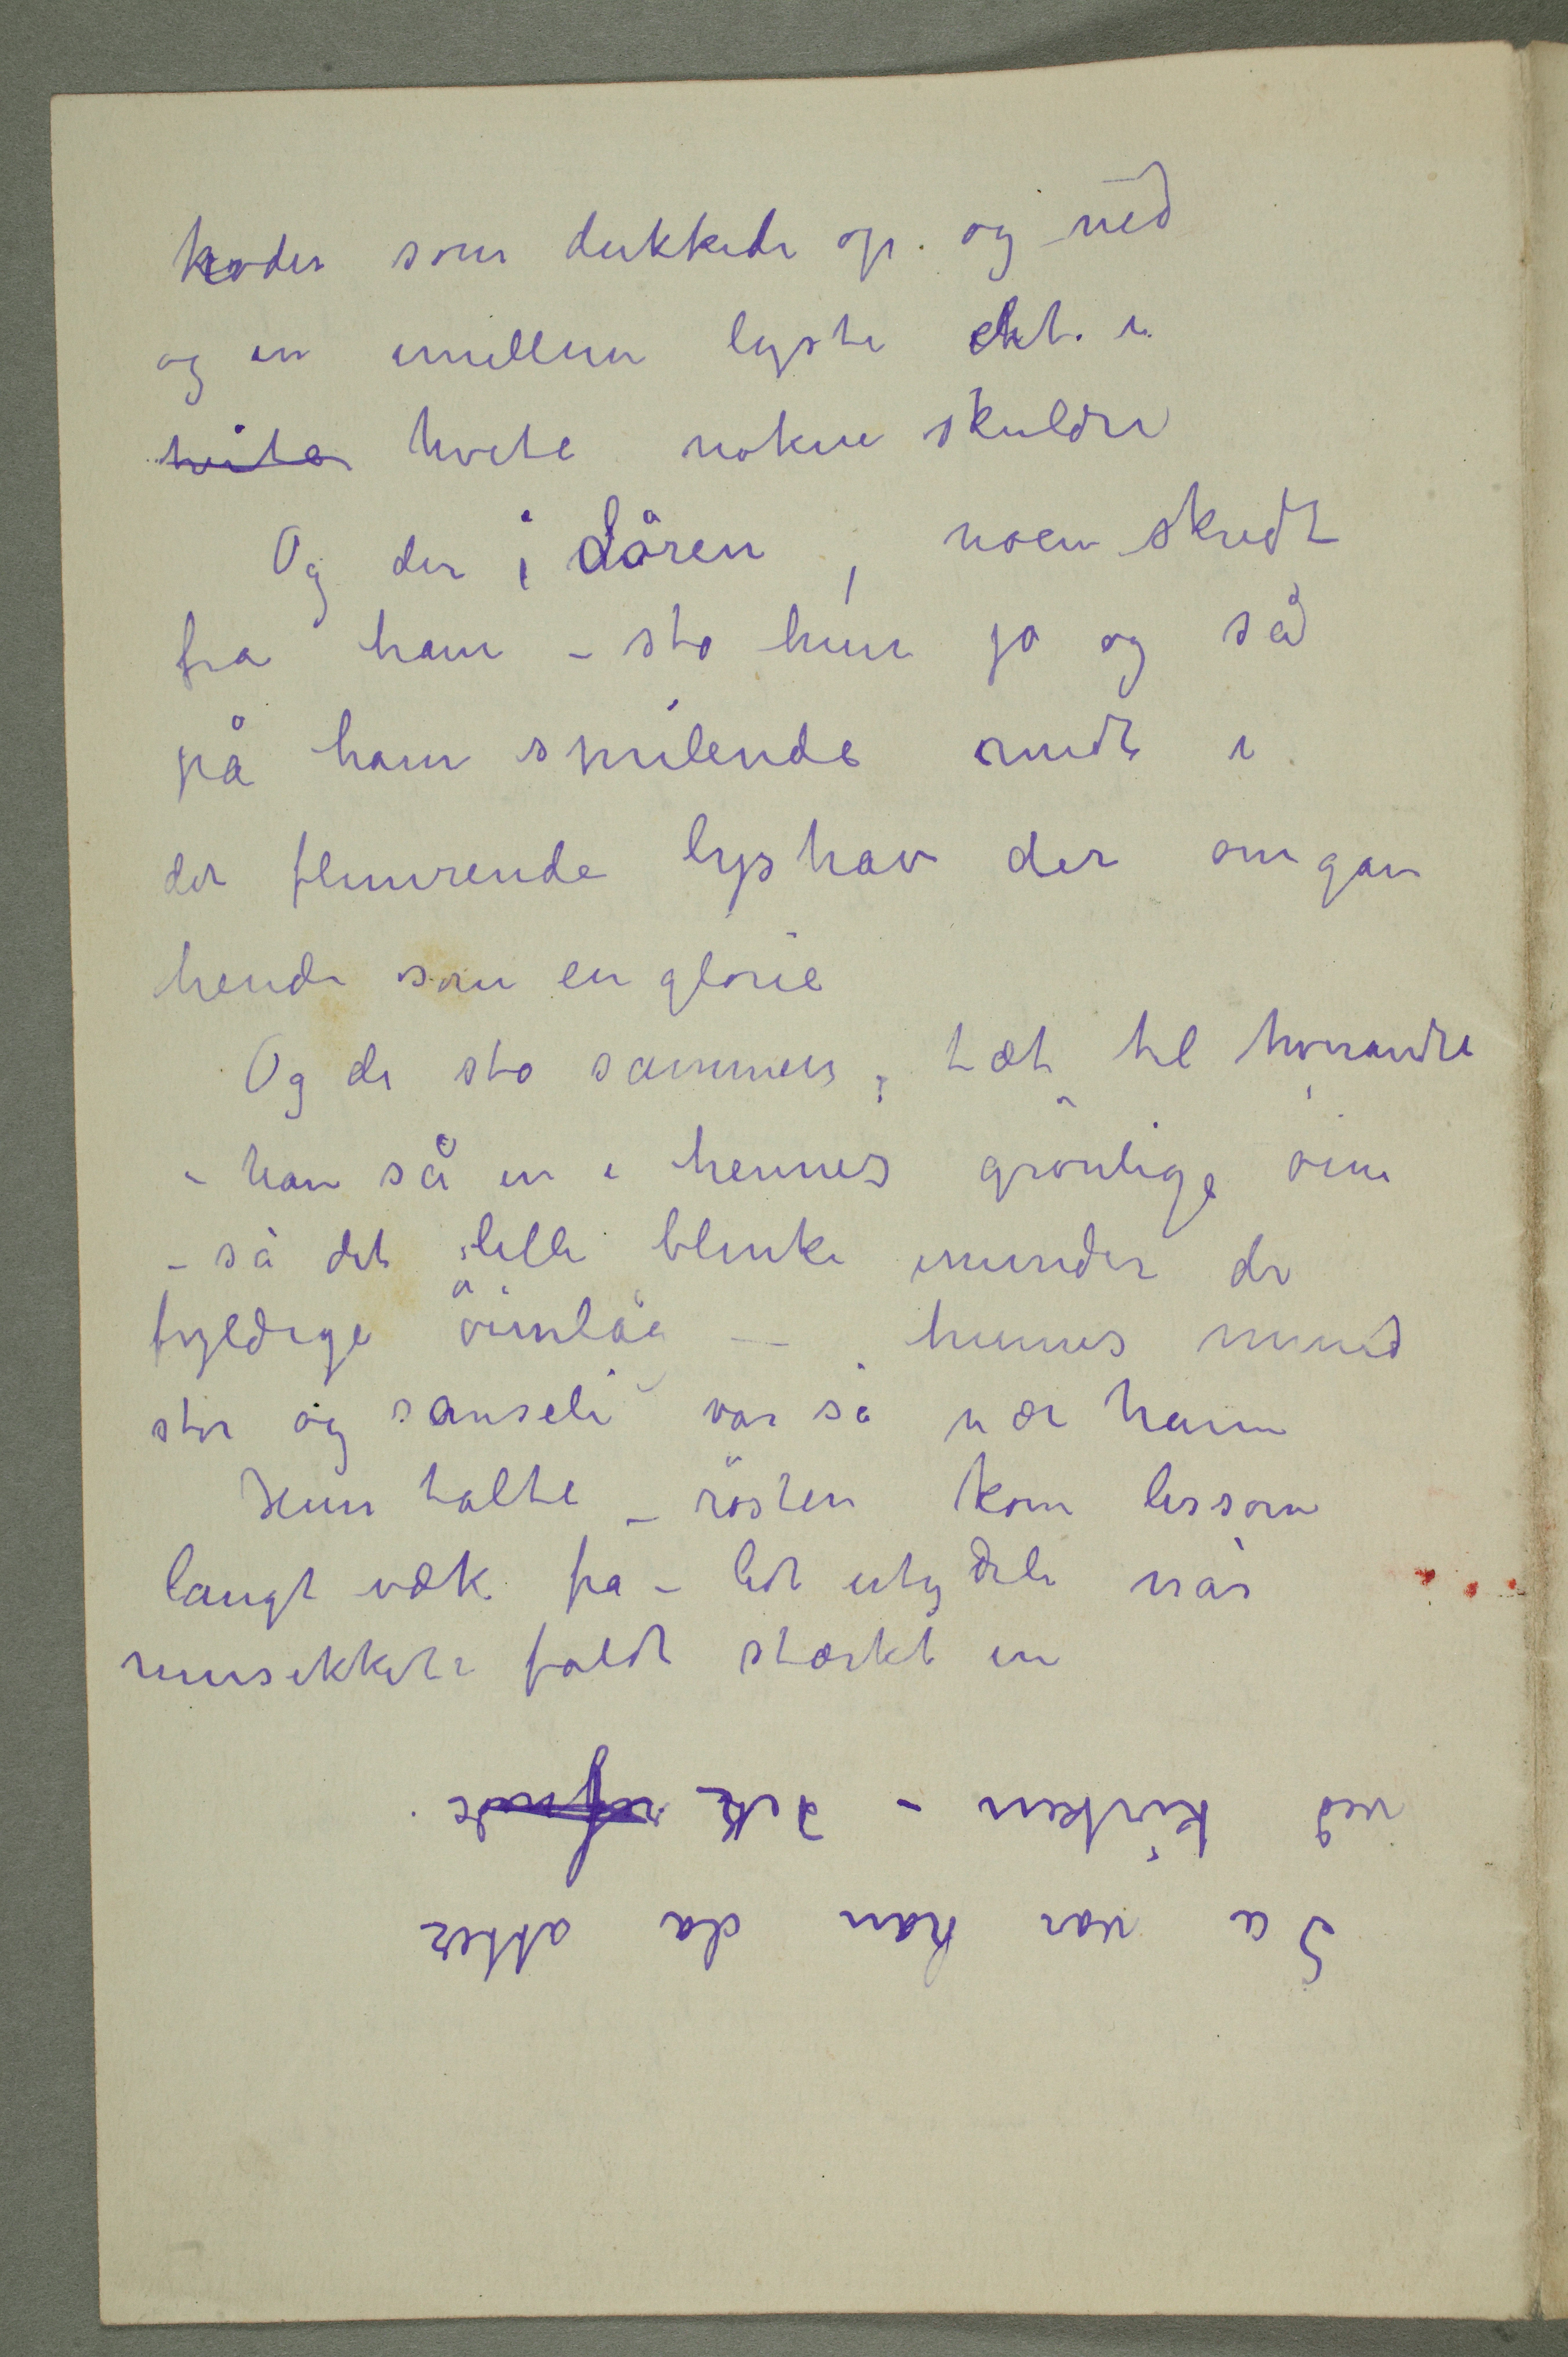 hoder som dukkede op og ned
og en imellem lyste det i
hvite hvite nokne skuldre
Og der i dören, noen skridt
fra ham – sto hun jo og så
på ham smilende midt i
det flimrende lyshav der omgav
hende som en glorie
Og de sto sammen, tæt til hverandre
– han så in i hennes grönlige öine
– så det lille blinke inunder de
fyldige öinlåg – hennes mund
stor og sanseli var så nær ham
Hun talte – rösten kom lissom
langt væk fra – lidt utydeli når
musikken faldt stærkt in
Så var han da atter
ved kirken – det